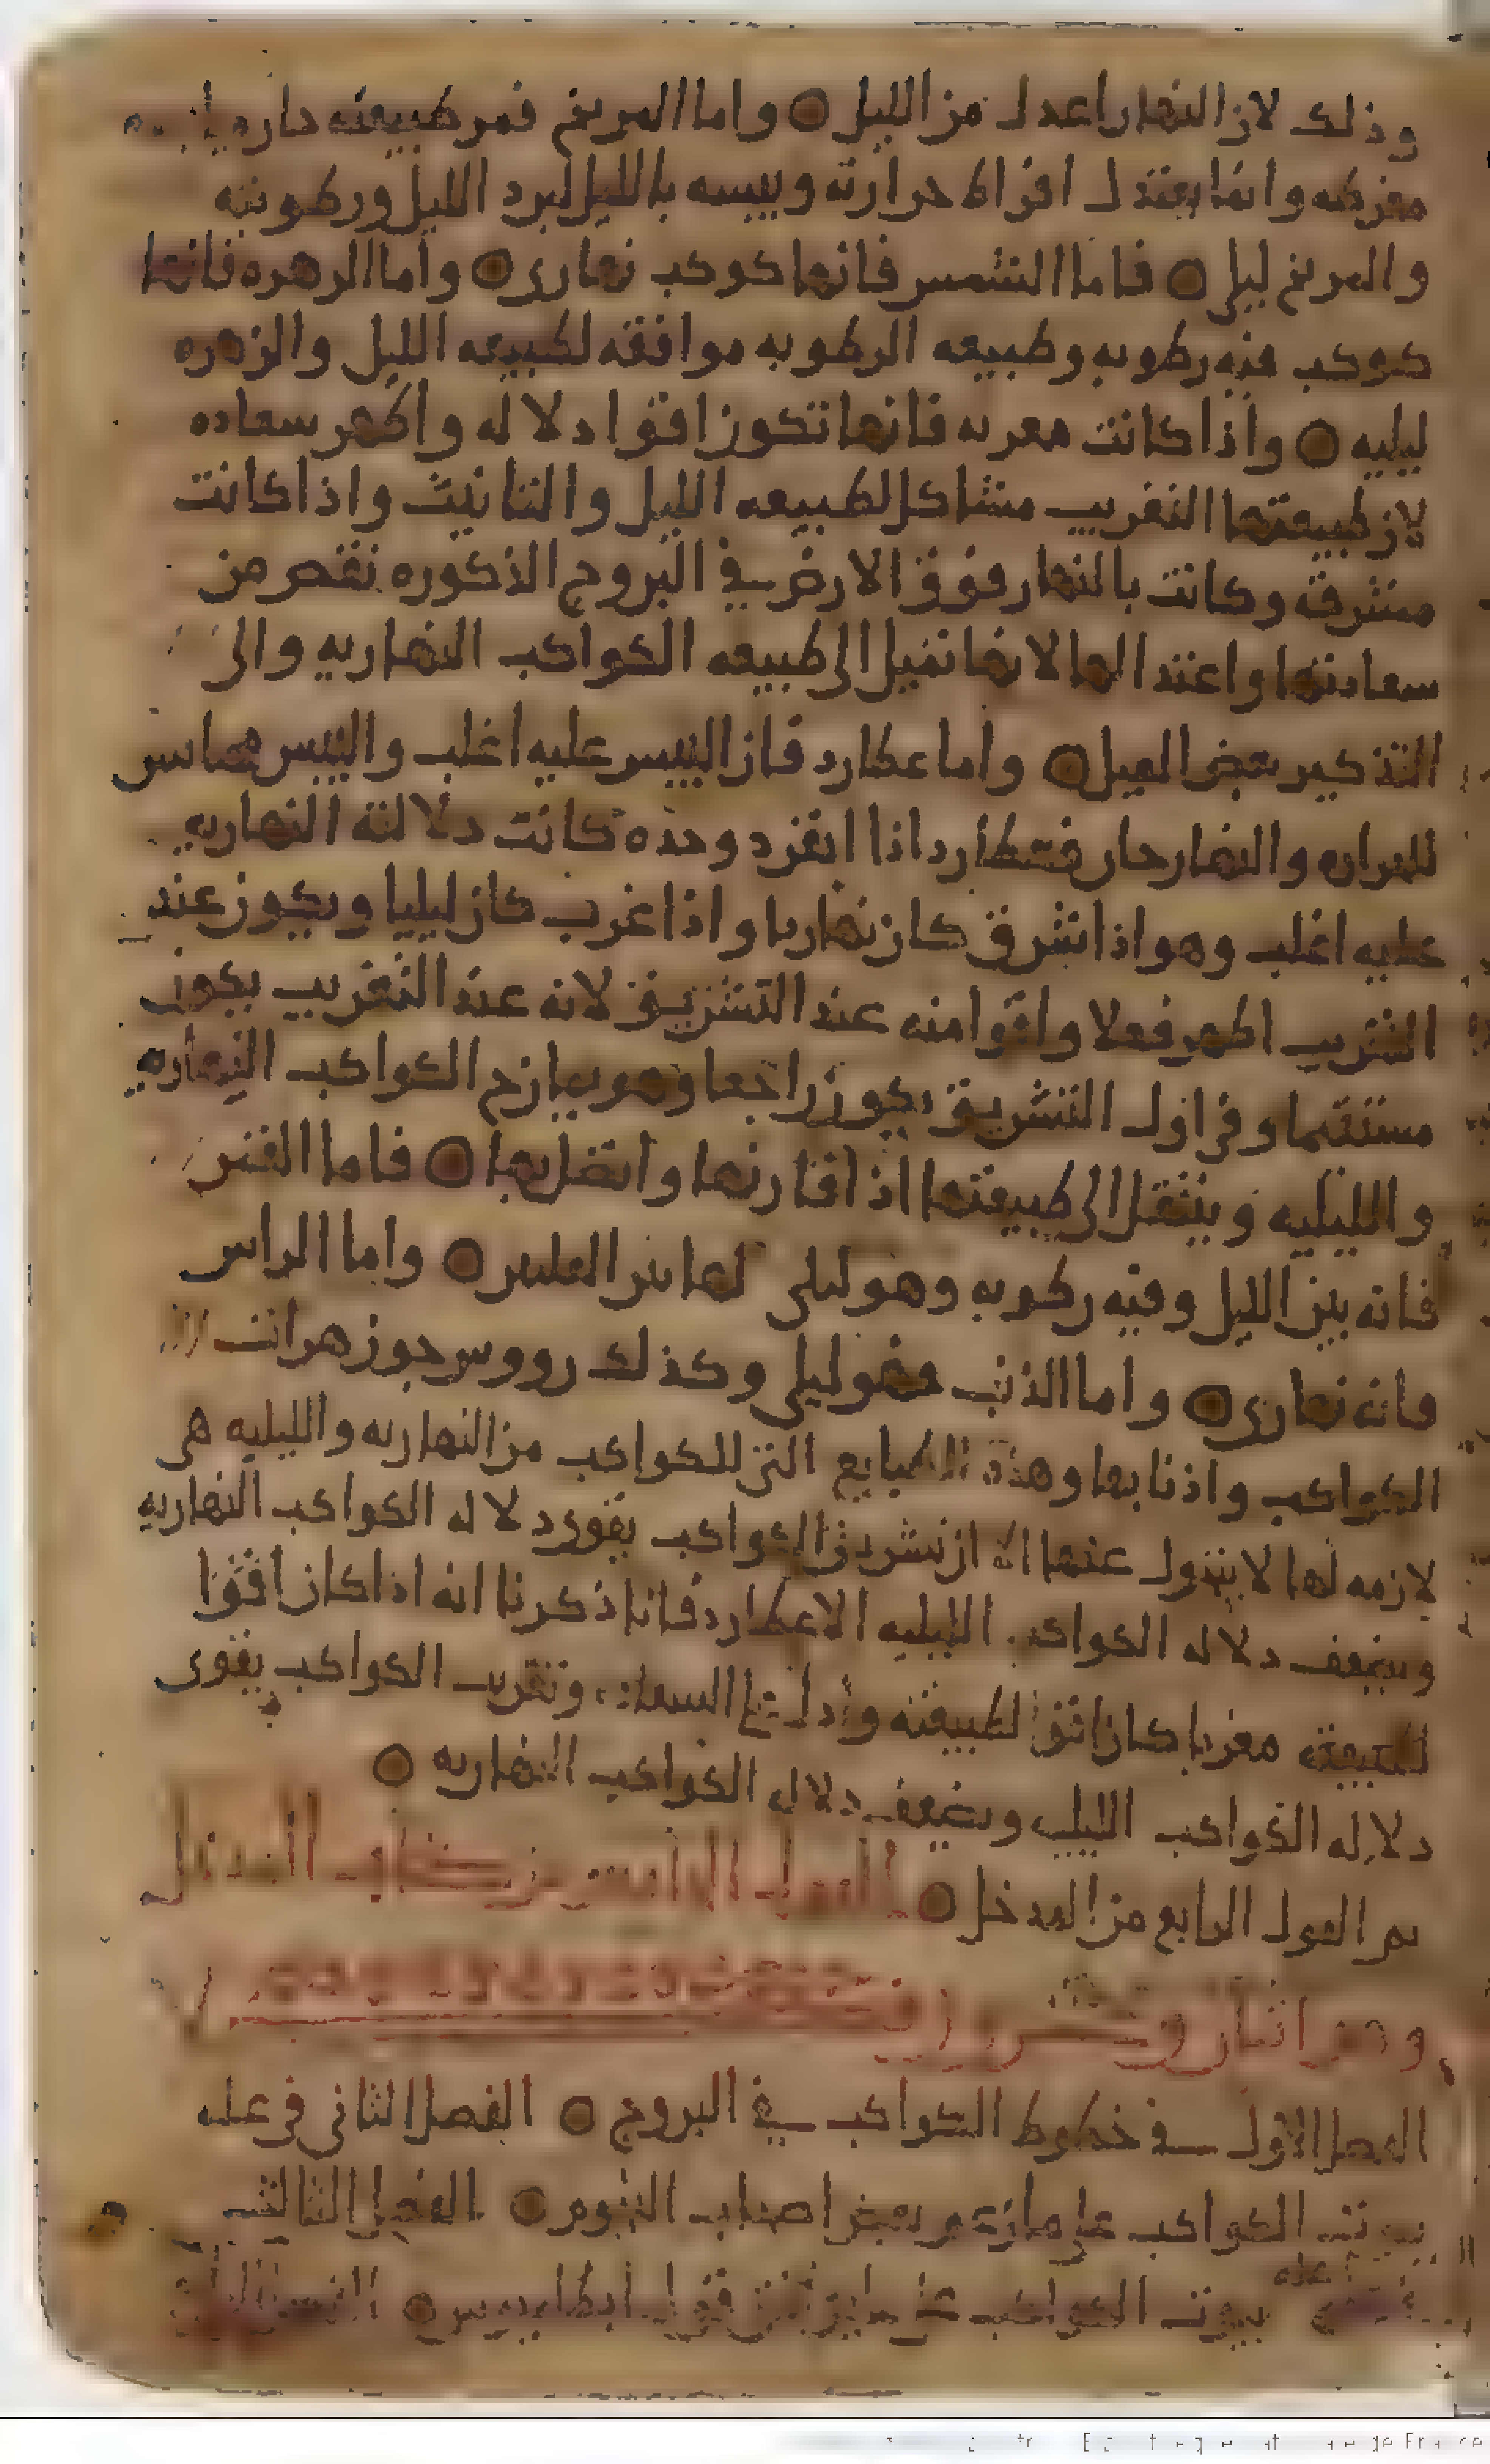 وذلك لان النهار اعدل من الليل ○ واما المريخ فمن طبيعته حاره يابسه
مفرطه وانما يعتدل افراط حرارته ويبسه بالليل لبرد الليل ورطوبته
والمريخ ليلى ○ فاما الشمس فانها كوكب نهارى ○ واما الزهره فانها
كوكب فيه رطوبه وطبيعه الرطوبه موافقه لطبيعه الليل والزهره
ليليه ○ واذا كانت مغربه فانها تكون اقوا دلاله واظهر سعاده
لان طبيعتها التغريب مشاكل لطبيعه الليل والتانيث واذا كانت
مشرقه وكانت بالنهار فوق الارض في البروج الذكوره نقص من
سعادتها واعتدالها لانها تميل الى طبيعه الكواكب النهاريه والى
التذكير بعض الميل ○ واما عطارد فان اليبس عليه اغلب واليبس
للحراره والنهار حار فعطارد اذا انفرد وحده كانت دلالته النهاريه
عليه اغلب وهو اذا شرق كان نهاريا واذا غرب كان ليليا ويكون عند
التغريب اظهر فعلا واقوا منه عند التشريق لانه عند التغريب يكون
مستقيما وفي اول التشريق يكون راجعا وهو يمازج الكواكب النهاريه
والليليه وينتقل الى طبيعتها اذا قارنها واتصل بها ○ فاما القمر
فانه بين الليل وفيه رطوبه وهو ليلى ○ واما الراس
فانه نهارى ○ واما الذنب فهو ليلى وكذلك رووس جوزهرات
الكواكب واذنابها وهذه الطبايع التي للكواكب من النهاريه والليليه هى
لازمه لها لا يزول عنها الا ان تشريق الكواكب يقوى دلاله الكواكب النهاريه
ويضعف دلاله الكواكب الليليه الا عطارد فانا ذكرنا انه اذا كان اقوا
لطبيعته مغربا كان اقوا لطبيعته وادل على السعاده وتغريب الكواكب يقوى
دلاله الكواكب الليليه ويضعف دلاله الكواكب النهاريه ○
تم القول الرابع من المدخل ○ القول الخامس من كتاب المدخل
وهو اثنان وعشرون
الفصل الاول في حظوظ الكواكب في البروج ○ الفصل الثانى في عله
بيوت الكواكب على ما زعم بعض اصحاب النجوم ○ الفصل الثالث
عله بيوت الكواكب على قول ابطلميوس ○